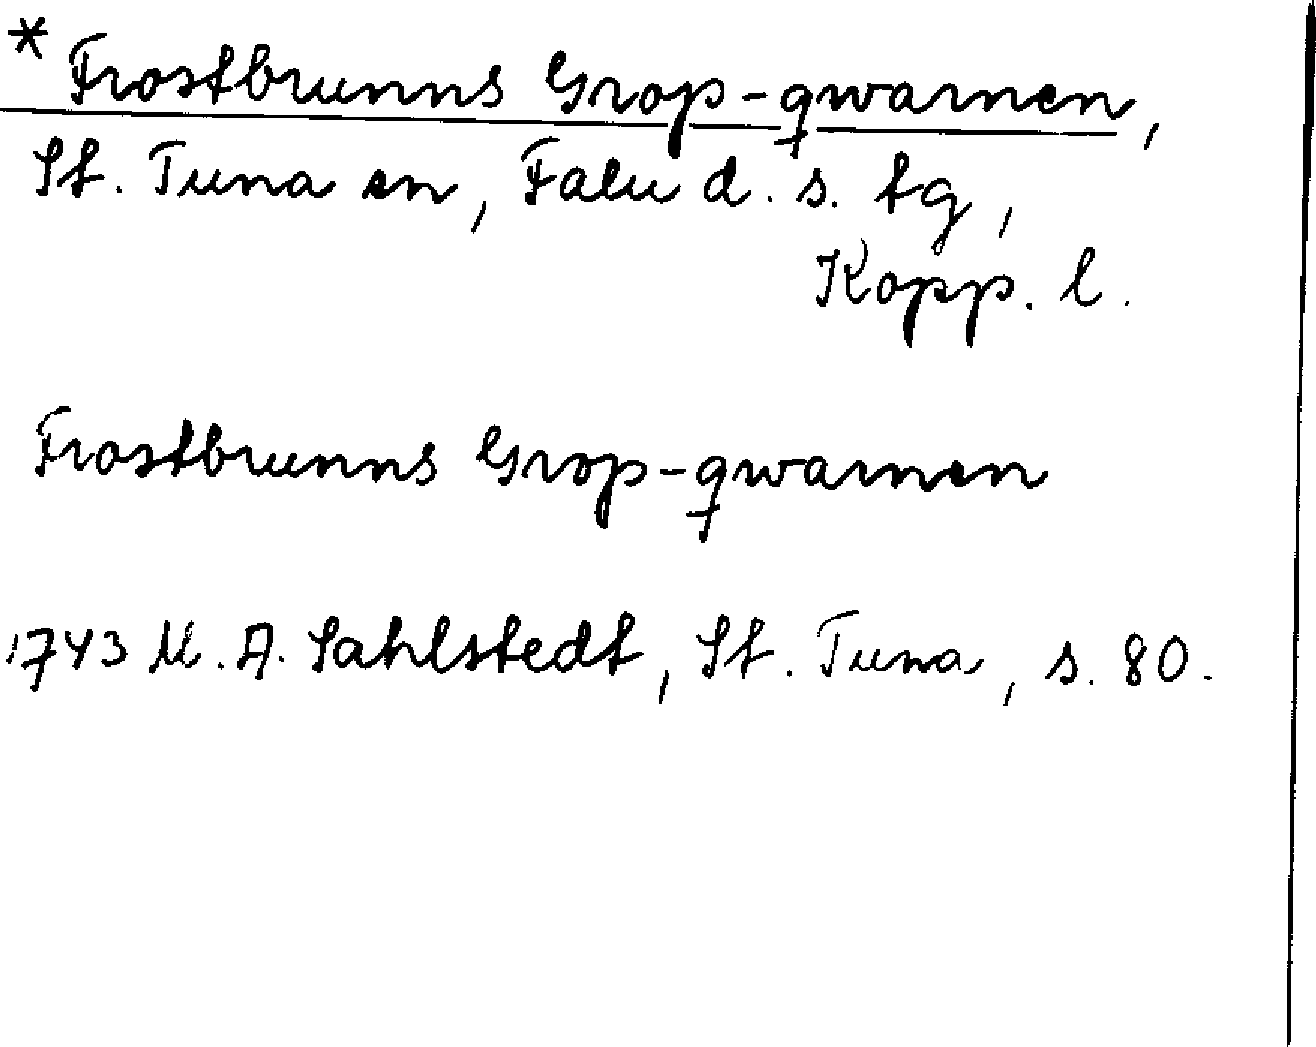 * Frostbrunns Grop-qwarnen,
St. Tuna sn, Falu d. s. tg,
Kopp. l.
Frostbrunns Grop-qwarnen
1743 M. A. Sahlstedt, St. Tuna, s. 80.